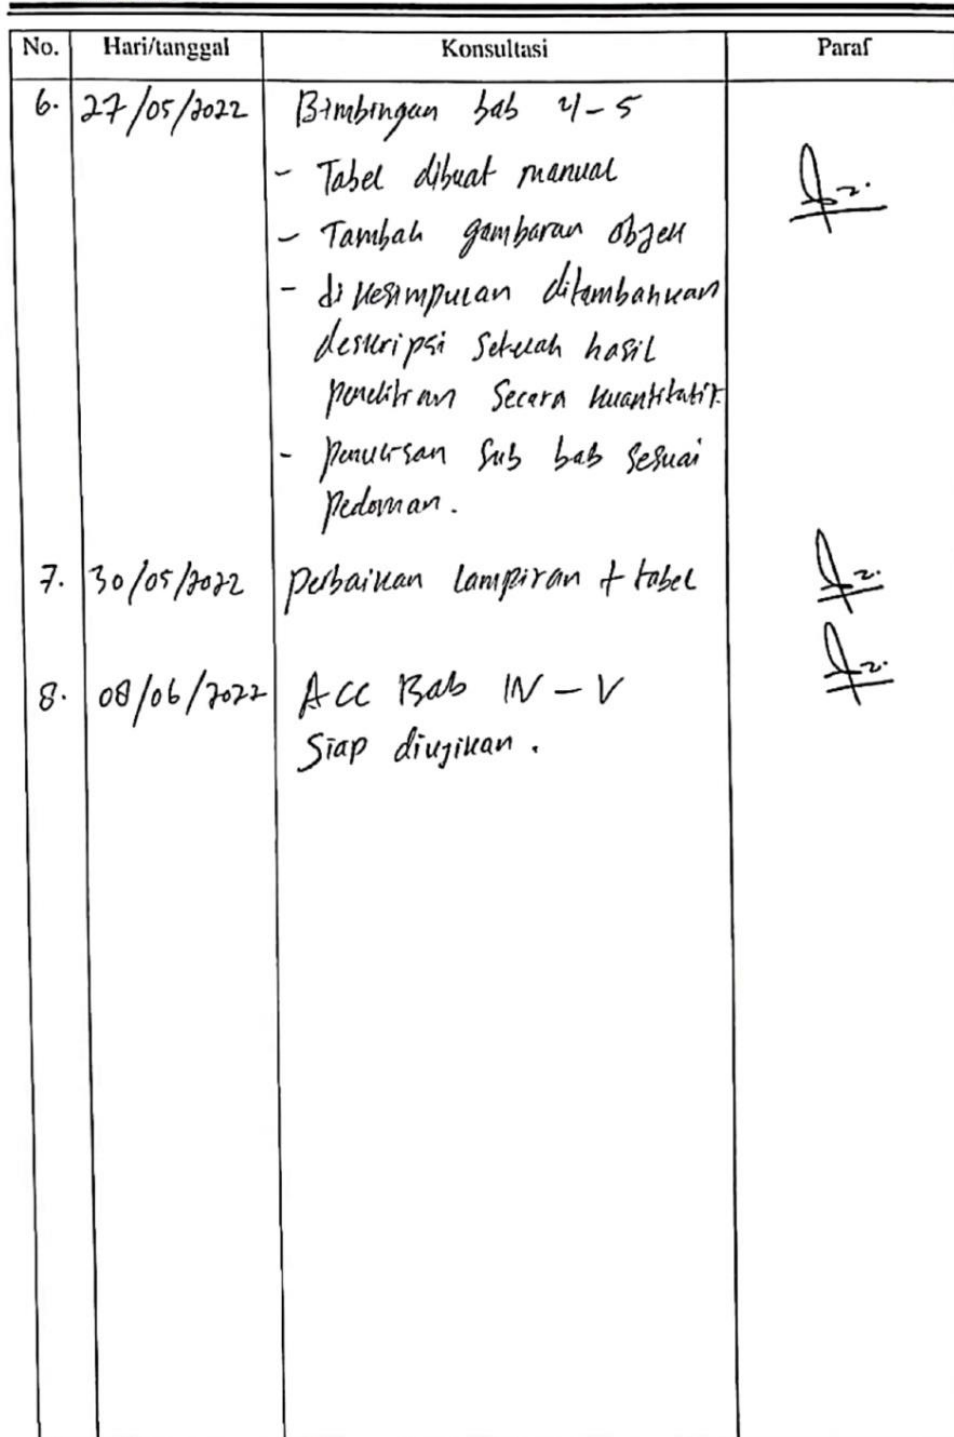 No. Hari/tanggal Konsultasi Paraf
6. 27/05/2022 Bimbingan bab 4-5
- Tabel dibuat manual
- Tambah gambaran objek
- di kesimpulan ditambahkan
deskripsi setelah hasil
penelitian secara kuantitatif.
- penulisan sub bab sesuai
pedoman.
7. 30/05/2022 perbaikan lampiran + tabel
8. 08/06/2022 ACC Bab IV - V
Siap diujikan.